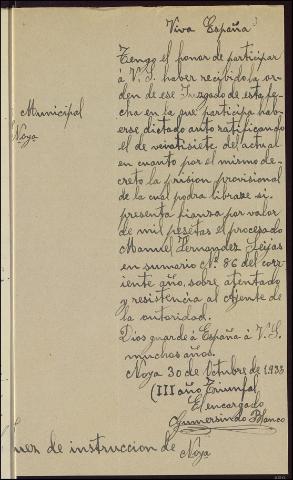 Viva España
Tengo el honor de participar
á V. S. haber recibido la or-
den de ese Juzgado de esta fe-
cha en la que participa hab-
erse dictado auto ratificando
el de veintisiete del actual
en cuanto por el mismo de-
creto la prision provisional
de la cual podra librarse si
presenta fianza por valor
de mil pesetas el procesado
Manuel Fernandez Seijas
en sumario Nº 86 del corr-
iente año, sobre atentado
y resistencia al Agente de
la autoridad.
Dios guarde á España á V. S.
muchos años.
Noya 30 de Octubre de 1938
(III año Triunfal
El encargado
Gumersindo Blanco
Municipal
Noya
Juez de instruccion de Noya